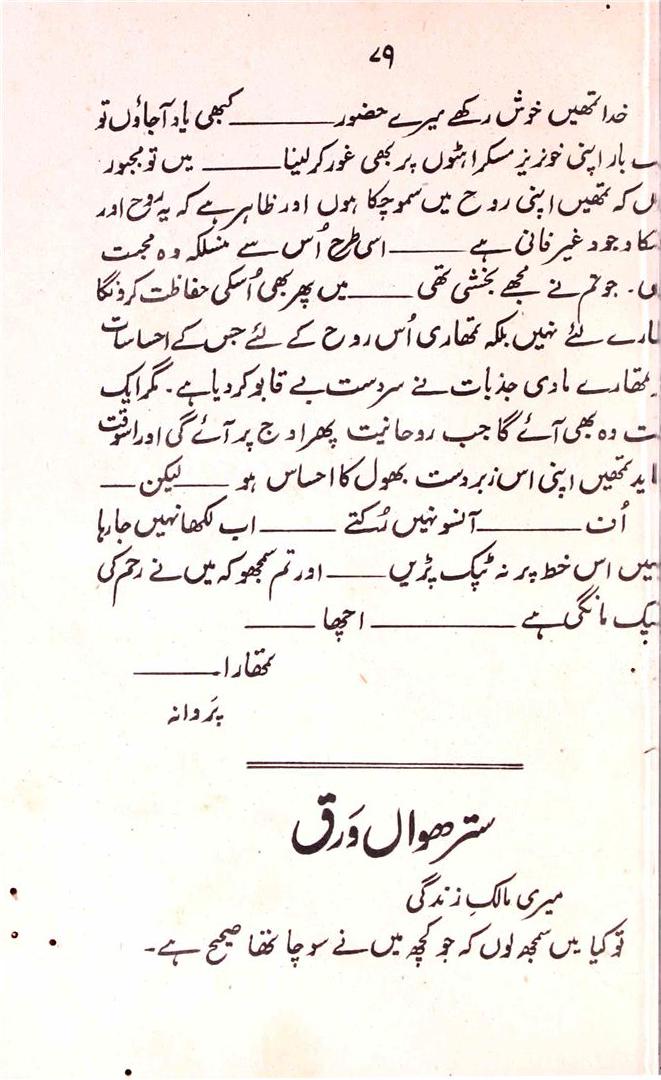 ۷۹
خدا تمھیں خوش رکھے میرے حضور ــــــــ کبھی یاد آجاؤں تو
بار اپنی خونریز مسکراہٹوں پر بھی غور کرلینا ــــــــ میں تو مجبور
کہ تمھیں اپنی روح میں سموچکا ہوں اور ظاہر ہے کہ یہ روح اور
وجود غیر فانی ہے ــــــــ اسی طرح اُس سے منسلکہ وہ محبت
جو تم نے مجھے بخشی تھی ــــــــ میں پھر بھی اُسکی حفاظت کرونگا
لئے نہیں بلکہ تمھاری اُس روح کے لئے جس کے احساسات
تمھارے مادی جذبات نے سردست بے قابو کردیا ہے۔ مگر ایک
وہ بھی آئے گا جب روحانیت پھر اوج پر آئے گی اور اسوقت
تمھیں اپنی اس زبردست بھول کا احساس ہو ــــــــ لیکن ــــــــ
اُن ــــــــ آنسو نہیں رُکتے ــــــــ اب لکھا نہیں جارہا
اس خط پر نہ ٹپک پڑیں ــــــــ اور تم سمجھو کہ میں نے رحم کی
مانگی ہے ــــــــ اچھا ــــــــ ــــــــ
تمھارا ــــــــ
پَروانہ
سترھواں وَرق
میری مالکِ زندگی
تو کیا میں سمجھ لوں کہ جو کچھ میں نے سوچا تھا صحیح ہے۔